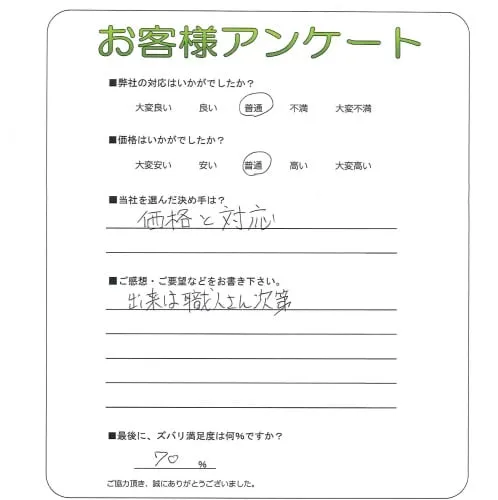 お客様アンケート
■弊社の対応はいかがでしたか？
大変良い 良い 普通 不満 大変不満
■価格はいかがでしたか？
大変安い 安い 普通 高い 大変高い
■当社を選んだ決め手は？
価格と対応
■ご感想・ご要望などをお書き下さい。
出来は職人さん次第
■最後に、ズバリ満足度は何%ですか？
70 %
ご協力頂き、誠にありがとうございました。